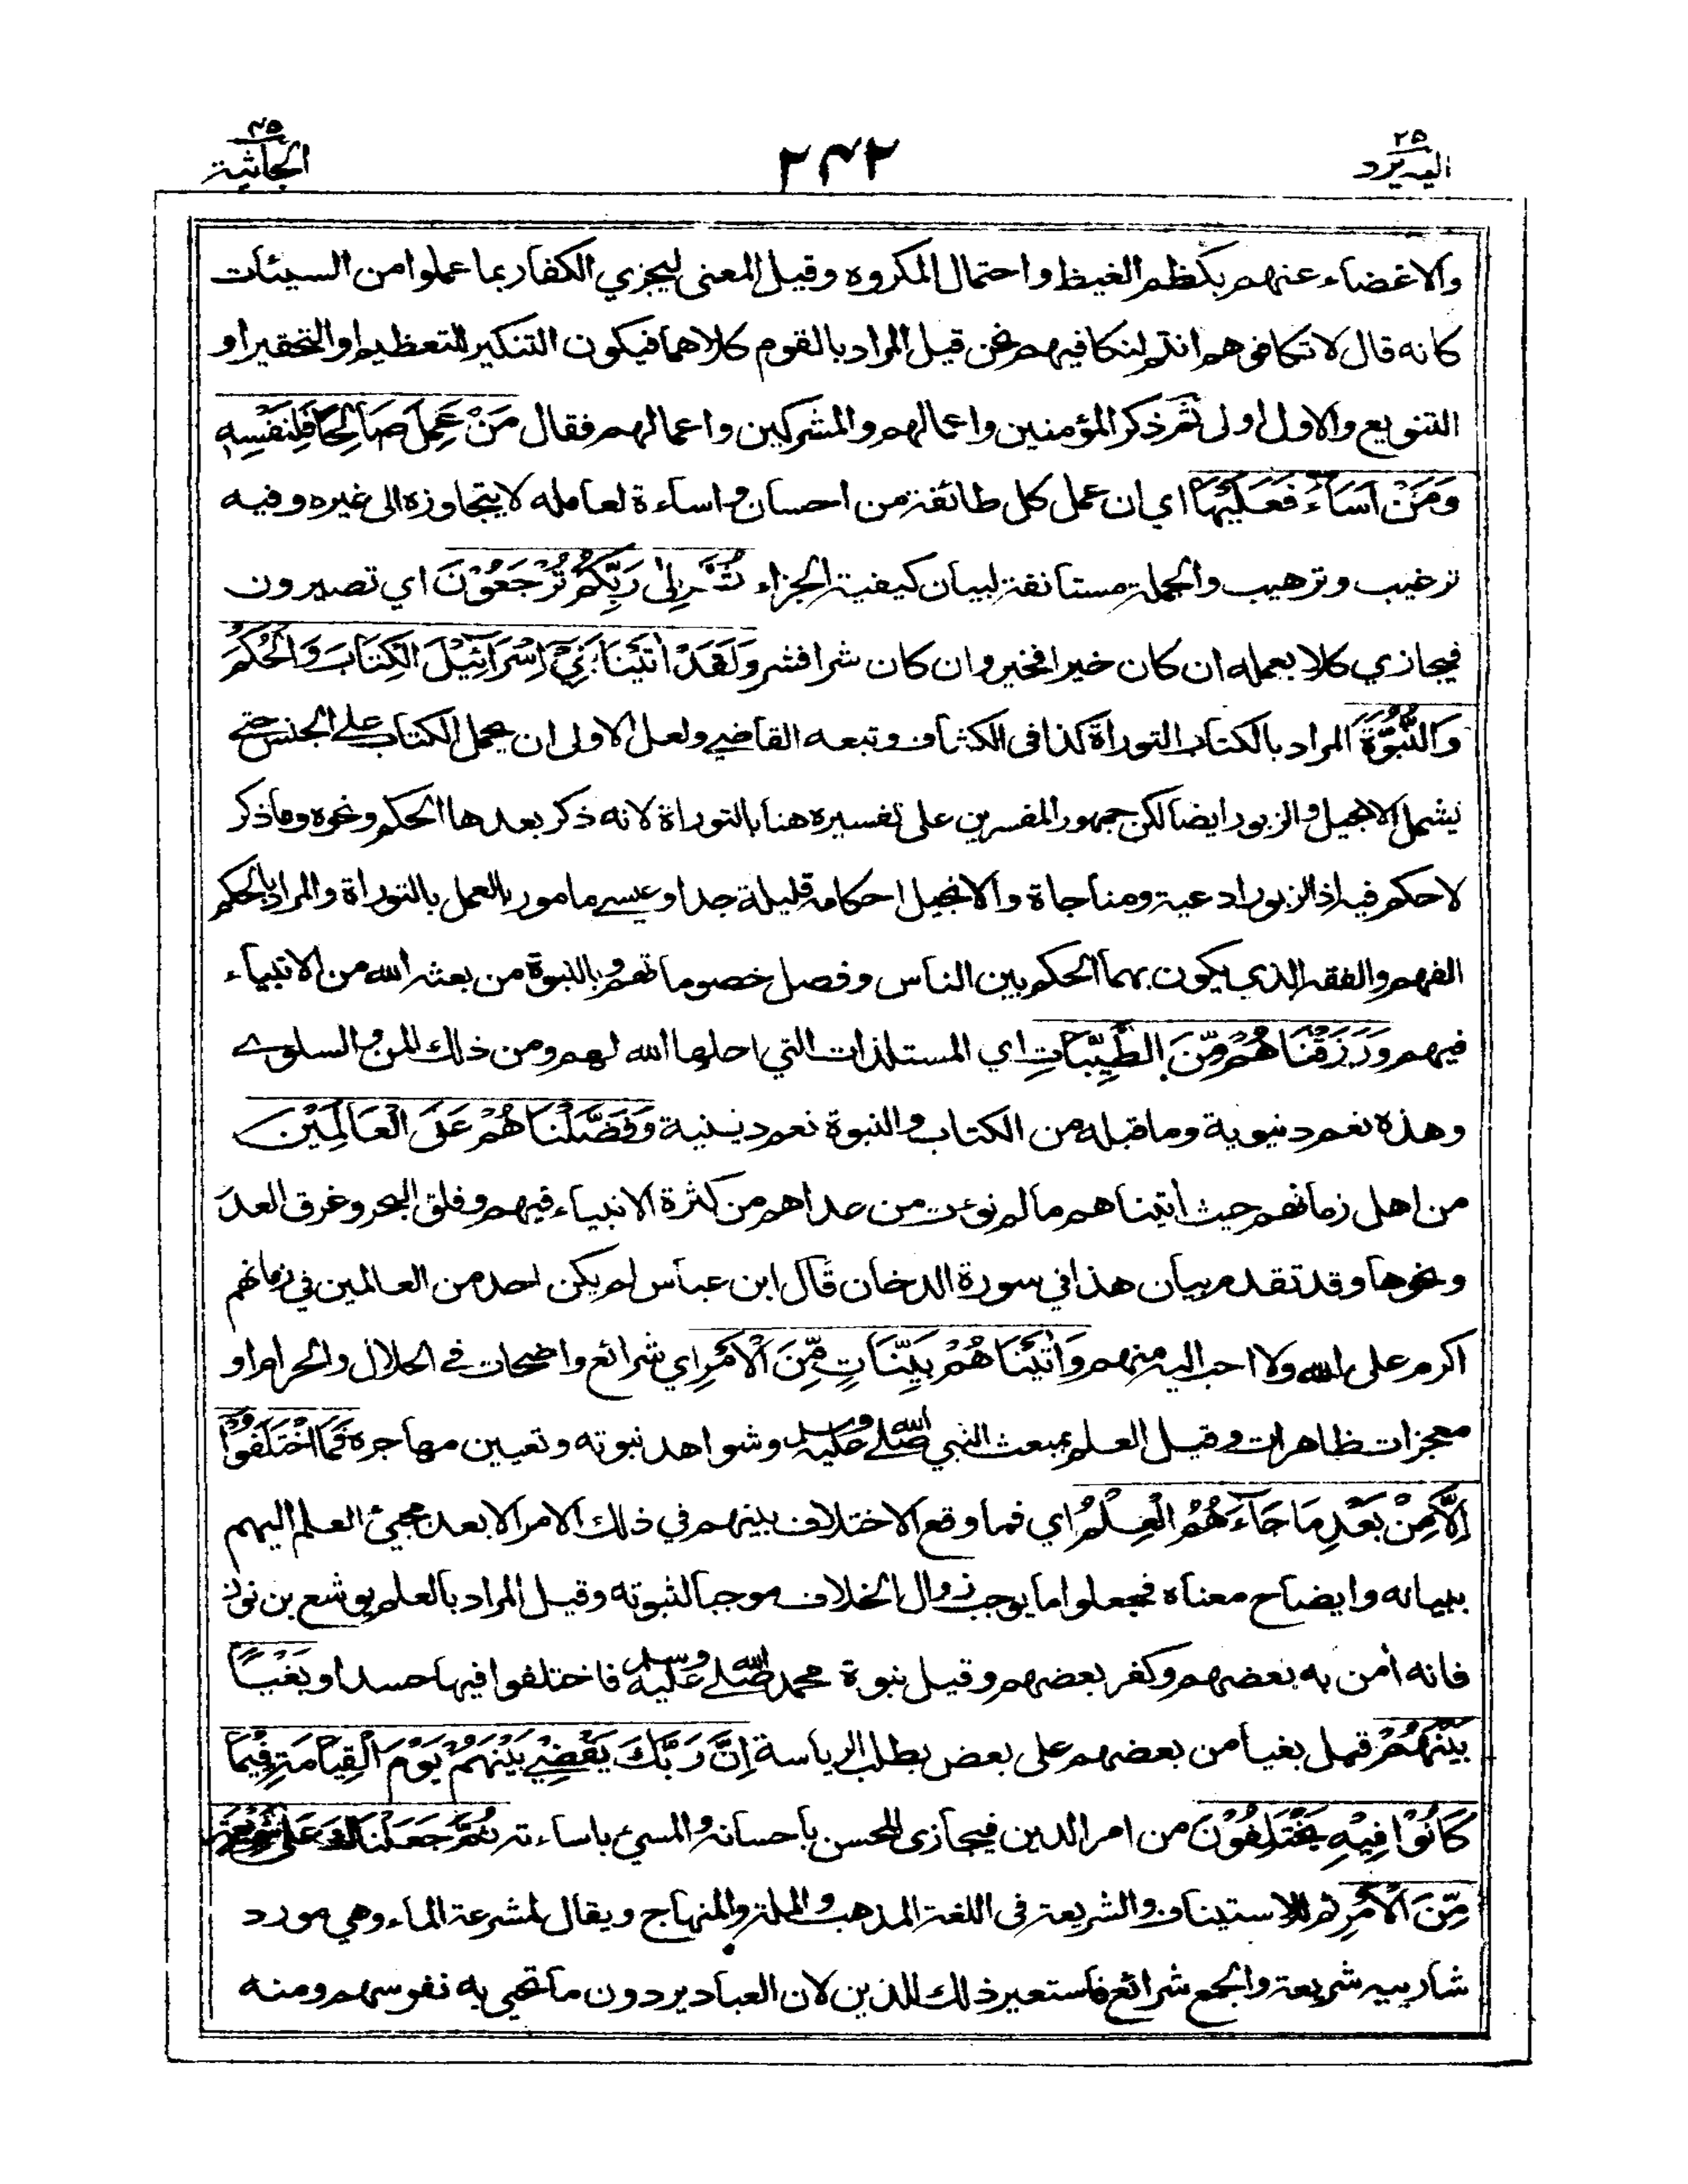 اليه يرد ٢٥
٢٤٢
الجاثية ٤٥
والاغضاء عنهم بكظم الغيظ واحتمال المكروه وقيل المعنى ليجزي الكفار بما عملوا من السيئات
كانه قال لا تكافؤهم انتم لنكافيهم نحن قيل المراد بالقوم كلاهما فيكون التنكير للتعظيم او التحقير او
التنويع والاول اولى ثم ذكر المؤمنين واعمالهم والمشركين واعمالهم فقال مَنْ عَمِلَ صَالِحًا فَلِنَفْسِهٖ
وَمَنْ اَسَآءَ فَعَلَيْهَا اي ان عمل كل طائفة من احسان واساءة لعامله لا يتجاوزه الى غيره وفيه
ترغيب وترهيب والجملة مستانفة لبيان كيفية الجزاء ثُمَّ اِلٰى رَبِّكُمْ تُرْجَعُوْنَ اي تصيرون
فيجازي كلا بعمله ان كان خيرا فخير وان كان شرا فشر وَلَقَدْ اٰتَيْنَا بَنِيْٓ اِسْرَآئِيْلَ الْكِتَابَ وَالْحُكْمَ
وَالنُّبُوَّةَ المراد بالكتاب التوراة كذا في الكشاف وتبعه القاضي ولعل الاولى ان يحمل الكتاب على الجنس حتى
يشمل الانجيل والزبور ايضا لكن جمهور المفسرين على تفسيره هنا بالتوراة لانه ذكر بعدها الحكم ونحوه وما ذكر
لا حكم فيه اذ الزبور ادعية ومناجاة والانجيل احكامه قليلة جدا وعيسى مامور بالعمل بالتوراة والمراد بالحكم
الفهم والفقه الذي يكون بهما الحكم بين الناس وفصل خصوماتهم وبالنبوة من بعثه الله من الانبياء
فيهم وَرَزَقْنَاهُمْ مِّنَ الطَّيِّبَاتِ اي المستلذات التي احلها الله لهم ومن ذلك المن والسلوى
وهذه نعم دنيوية وما قبله من الكتاب والنبوة نعم دينية وَفَضَّلْنَاهُمْ عَلَى الْعَالَمِيْنَ
من اهل زمانهم حيث اٰتيناهم ما لم نؤت من عداهم من كثرة الانبياء فيهم وفلق البحر وغرق العدو
ونحوها وقد تقدم بيان هذا في سورة الدخان قال ابن عباس لم يكن احد من العالمين في زمانهم
اكرم على الله ولا احب اليه منهم وَاٰتَيْنَاهُمْ بَيِّنَاتٍ مِّنَ الْاَمْرِ اي شرائع واضحات في الحلال والحرام او
معجزات ظاهرات وقيل العلم بمبعث النبي صلى الله عليه وسلم وشواهد نبوته وتعيين مهاجره فَمَا اخْتَلَفُوْٓا
اِلَّا مِنْۢ بَعْدِ مَا جَآءَهُمُ الْعِلْمُ اي فما وقع الاختلاف بينهم في ذلك الامر الا بعد مجئ العلم اليهم
ببيانه وايضاح معناه فجعلوا ما يوجب زوال الخلاف موجبا لثبوته وقيل المراد بالعلم يوشع بن نون
فانه اٰمن به بعضهم وكفر بعضهم وقيل نبوة محمد صلى الله عليه وسلم فاختلفوا فيها حسدا و بَغْيًاۢ
بَيْنَهُمْ قيل بغيا من بعضهم على بعض بطلب الرياسة اِنَّ رَبَّكَ يَقْضِيْ بَيْنَهُمْ يَوْمَ الْقِيَامَةِ فِيْمَا
كَانُوْا فِيْهِ يَخْتَلِفُوْنَ من امر الدين فيجازى المحسن باحسانه والمسئ باساءته ثُمَّ جَعَلْنَاكَ عَلٰى شَرِيْعَةٍ
مِّنَ الْاَمْرِ ثم للاستيناف والشريعة في اللغة المذهب والملة والمنهاج ويقال لمشرعة الماء وهي مورد
شاربيه شريعة والجمع شرائع فاستعير ذلك للدين لان العباد يردون ما تحيى به نفوسهم ومنه